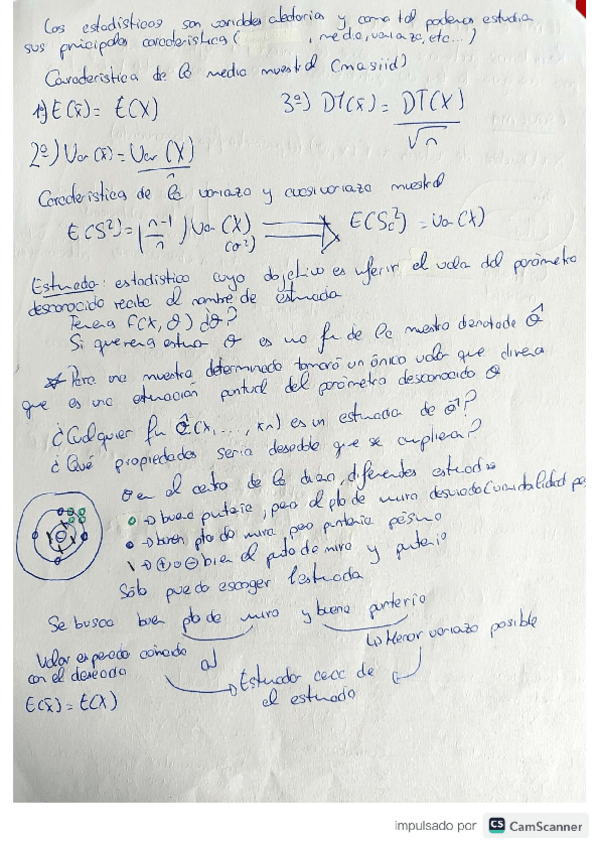 Los estadísticos son variables aleatorias y como tal podemos estudia
sus principales característica ( , media, varianza, etc...)
Característica de la media muestral (masiid)
1º) E(x̄) = E(X)
3º) DT(x̄) = DT(X) / √n
2º) Var(x̄) = Var(X) / n
Característica de la varianza y cuasivarianza muestral
E(S²) = (n-1 / n) Var(X) (σ²) ⟹ E(Sc²) = Var(X)
Estimador: estadístico cuyo objetivo es inferir el valor del parámetro
desconocido recibe el nombre de estimador
f(x, θ) ¿θ?
Si θ es una fn de la muestra denotado θ̂
* Para una muestra determinada tomará un único valor que
que es una estimación puntual del parámetro desconocido θ
¿Cualquier fn θ̂(x1,..., xn) es un estimador de θ?
¿Qué propiedades sería deseable que se cumpliera?
θ en el centro de la diana, diferentes estimados
o → buena puntería, pero el pto de mira desviado
• → buen pto de mira, pero puntería pésima
\ → ⊕ o ⊖ bien el punto de mira y puntería
Sólo puedo escoger 1 estimador
Se busca buen pto de mira y buena puntería
↳ Menor varianza posible
Valor esperado coincida
con el deseado
al
→ Estimador cerca de
el estimado
E(x̄) = E(X)
impulsado por CS CamScanner